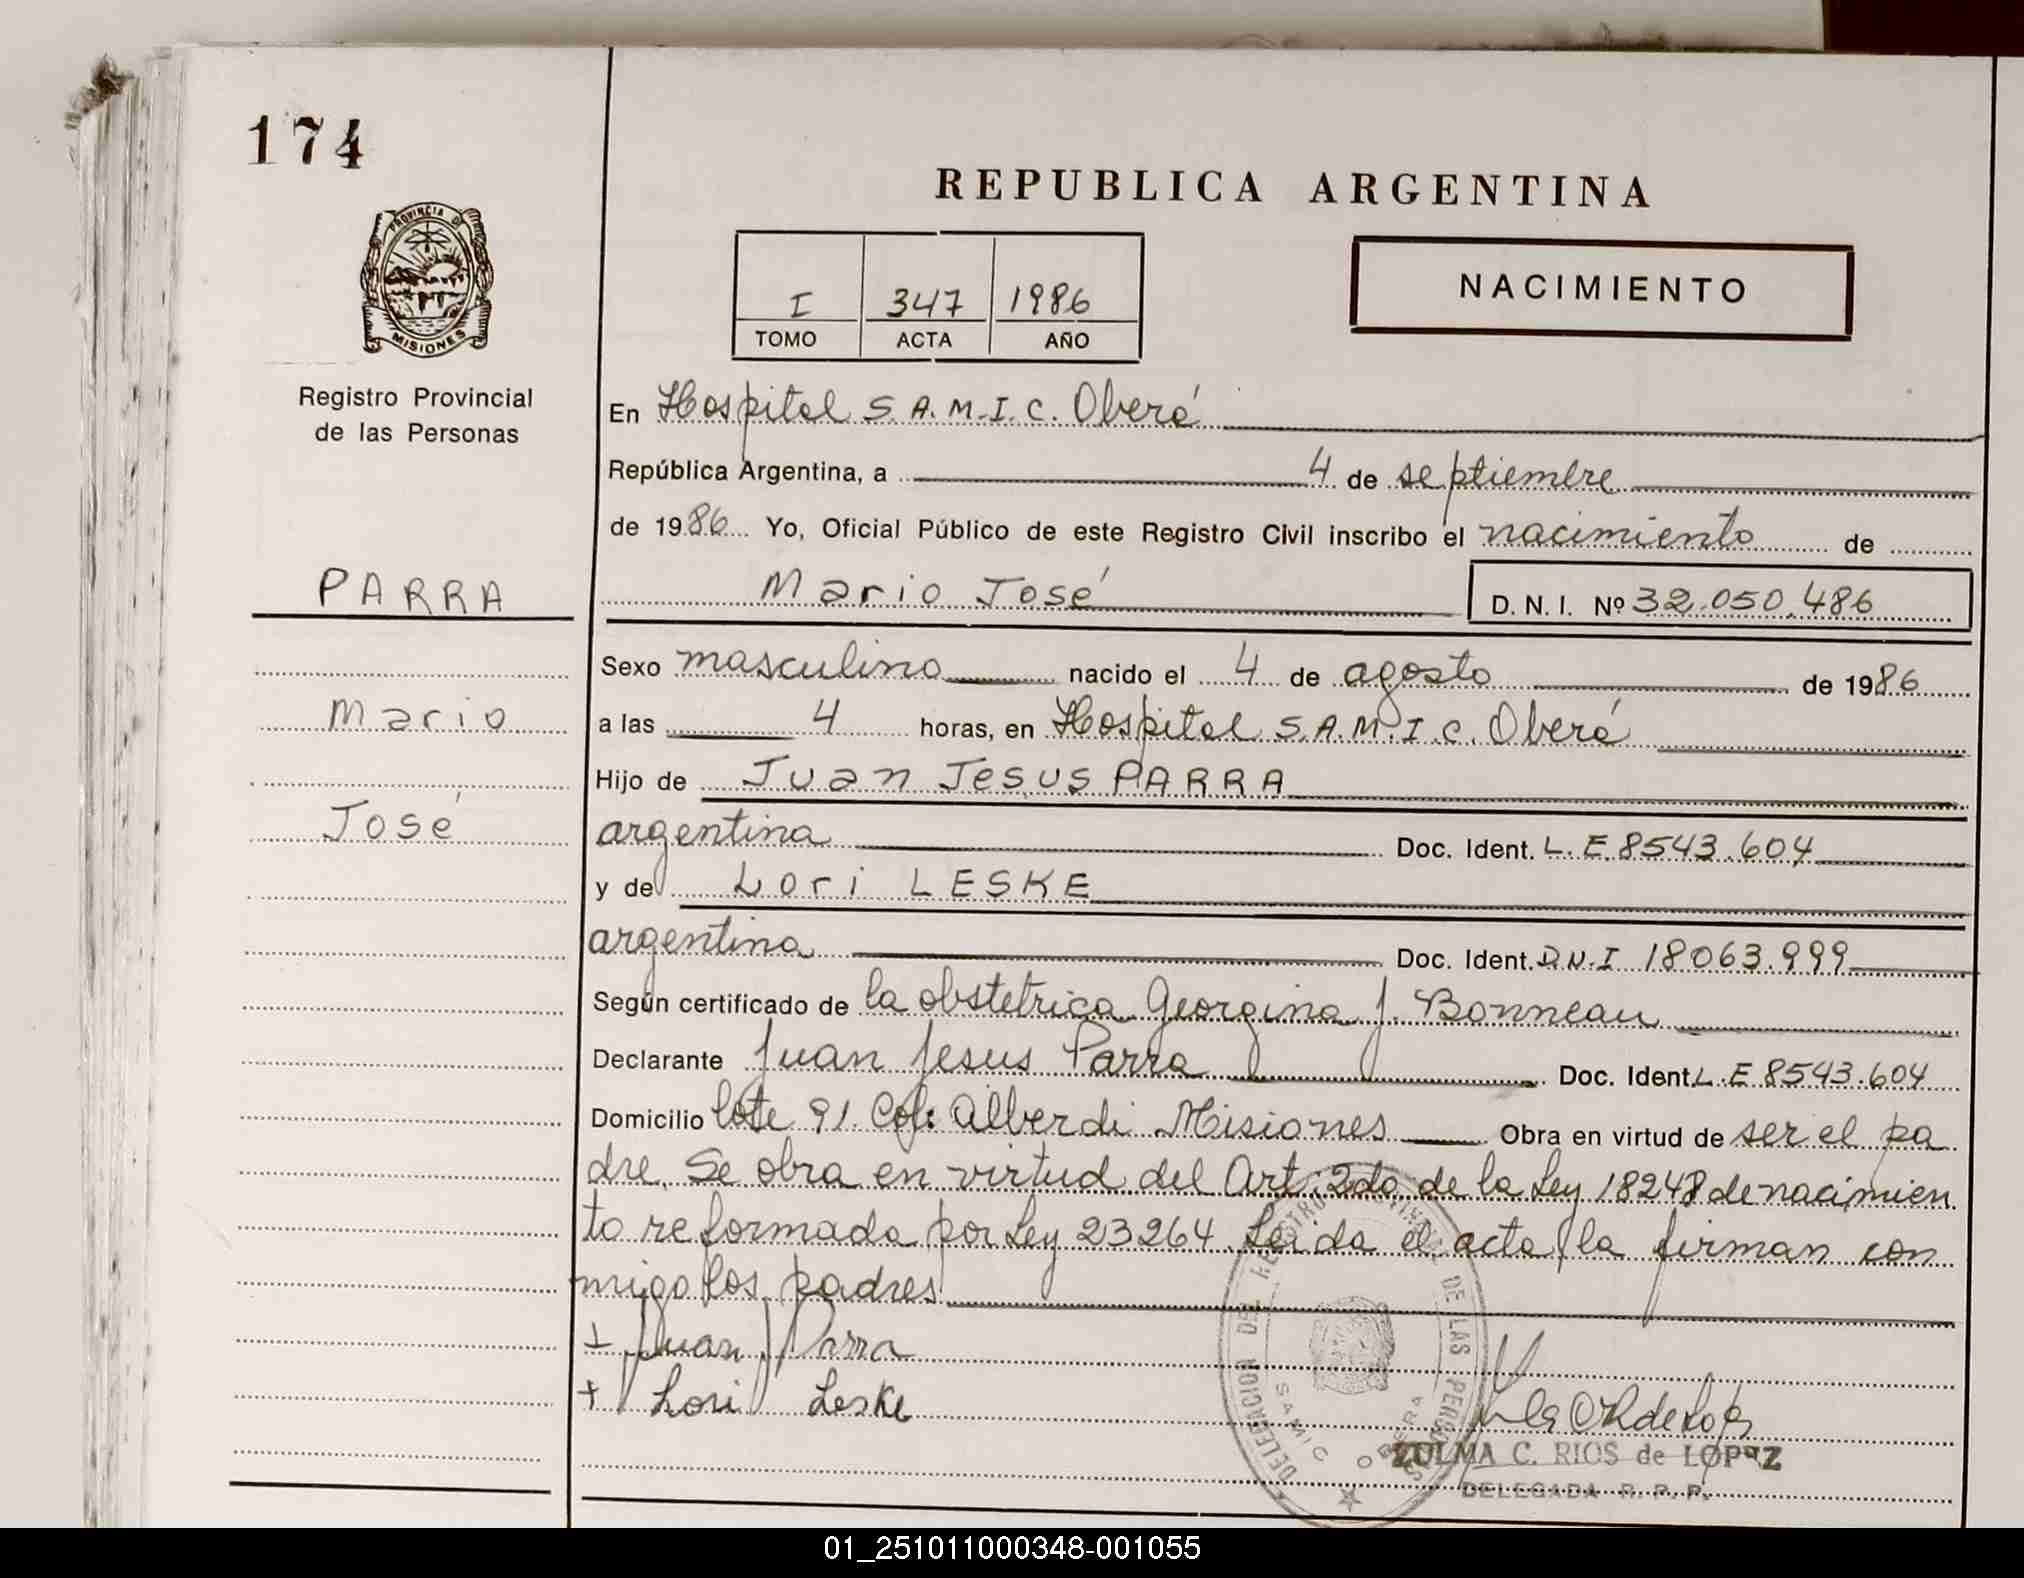 174
REPUBLICA ARGENTINA
PROVINCIA DE
MISIONES
I 347 1986
TOMO ACTA AÑO
NACIMIENTO
Registro Provincial
de las Personas
PARRA
Mario
José
En Hospital S.A.M.I.C. Oberá
República Argentina, a 4 de septiembre
de 1986 Yo, Oficial Público de este Registro Civil inscribo el nacimiento de
Mario José D. N. I. Nº 32.050.486
Sexo masculino nacido el 4 de agosto de 1986
a las 4 horas, en Hospital S.A.M.I.C. Oberá
Hijo de Juan Jesus PARRA
argentina Doc. Ident. L.E 8543.604
y de Lori LESKE
argentina Doc. Ident. D.N.I 18063.999
Según certificado de la obstetrica Georgina J. Bonneau
Declarante Juan Jesus Parra Doc. Ident. L.E 8543.604
Domicilio lote 91. Col: Alberdi Misiones Obra en virtud de ser el pa
dre. Se obra en virtud del Art. 2do de la Ley 18248 de nacimien
to reformada por Ley 23264. Leida el acta la firman con
migo los padres
+ Juan J Parra
+ Lori Leske
DELEGACION DEL REGISTRO PROVINCIAL DE LAS PERSONAS
SAMIC OBERA
ZULMA C. RIOS de LOPEZ
DELEGADA R. P. P.
01_251011000348-001055